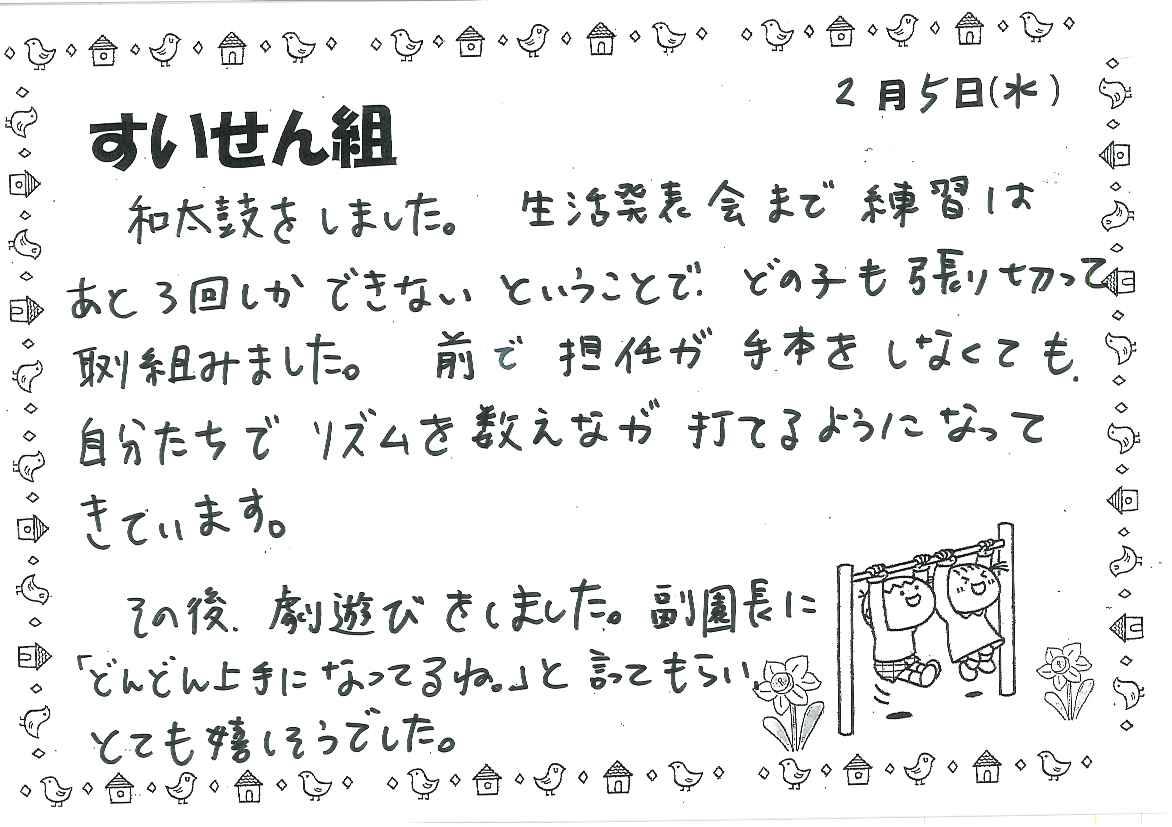 2月5日(水)
すいせん組
和太鼓をしました。 生活発表会まで練習は
あと3回しかできないということで、どの子も張り切って
取り組みました。 前で担任が手本をしなくても、
自分たちでリズムを数えなが打てるようになって
きています。
その後、劇遊びをしました。副園長に
「どんどん上手になってるね。」と言ってもらい、
とても嬉しそうでした。